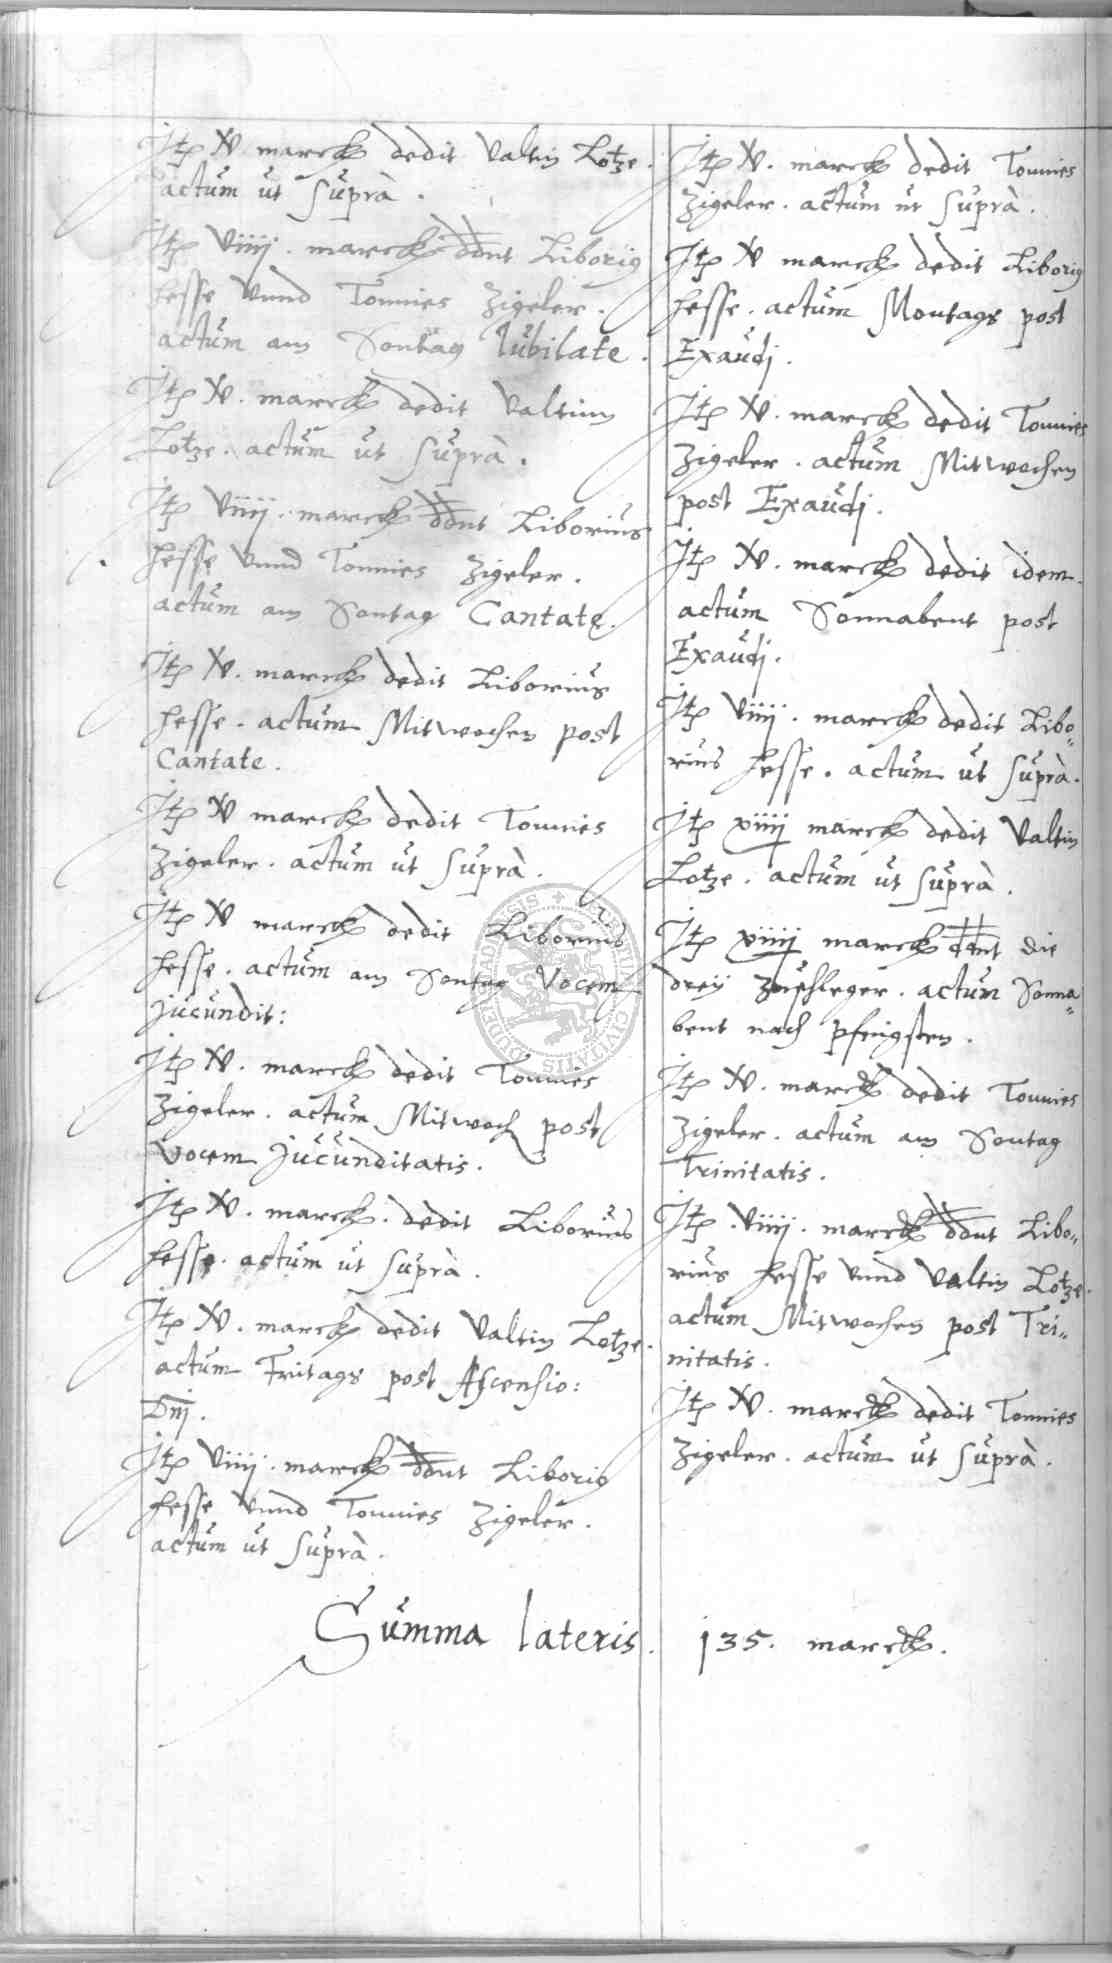 Itƥ v marck dedit Valtin Lotze.
actum ut suprà.
Itƥ viiij. marck ddnt Liboriꝰ
Hesse vnnd Tonnies Zigeler.
actum am Sontag Iubilate.
Itƥ v. marck dedit Valtinn
Lotze. actum ut suprà.
Itƥ viiij. marck ddnt Liborius
Hesse vnnd Tonnies Zigeler.
actum am Sontag Cantate.
Itƥ v. marck dedit Liborius
Hesse. actum Mitwochen post
Cantate.
Itƥ v marck dedit Tonnies
Zigeler. actum ut suprà.
Itƥ v marck dedit Liborius
Hesse. actum am Sontag Vocem
jucundit:
Itƥ v. marck dedit Tonnies
Zigeler. actum Mitwoch post
Vocem jucunditatis.
Itƥ v. marck. dedit Liborius
Hesse. actum ut suprà.
Itƥ v. marck dedit Valtin Lotze.
actum Fritags post Ascensio:
Dnj.
Itƥ viiij. marck ddnt Liboriꝰ
Hesse vnnd Tonnies Zigeler.
actum ut suprà.
Itƥ v. marck dedit Tonnies
Zigeler. actum ut suprà.
Itƥ v marck dedit Liboriꝰ
Hesse. actum Montags post
Exaudj.
Itƥ v. marck dedit Tonnies
Zigeler. actum Mitwochen
post Exaudj.
Itƥ v. marck dedit idem.
actum Sonnabent post
Exaudj.
Itƥ viiij. marck dedit Libo=
rius Hesse. actum ut suprà.
Itƥ xiiij marck dedit Valtin
Lotze. actum ut suprà.
Itƥ xiiij marck ddnt die
dreÿ Zuschleger. actum Sonna=
bent nach pfingsten.
Itƥ v. marck dedit Tonnies
Zigeler. actum am Sontag
Trinitatis.
Itƥ. viiij. marck ddnt Libo=
rius Hesse vnnd Valtin Lotze.
actum Mitwochen post Tri=
nitatis.
Itƥ v. marck dedit Tonnies
Zigeler. actum ut suprà.
Summa lateris. 135. marck.